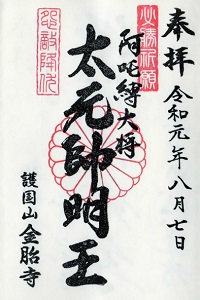 奉拝
令和元年八月七日
必勝祈願
阿吒縛大将
太元帥明王
怨敵降伏
護国山
金胎寺